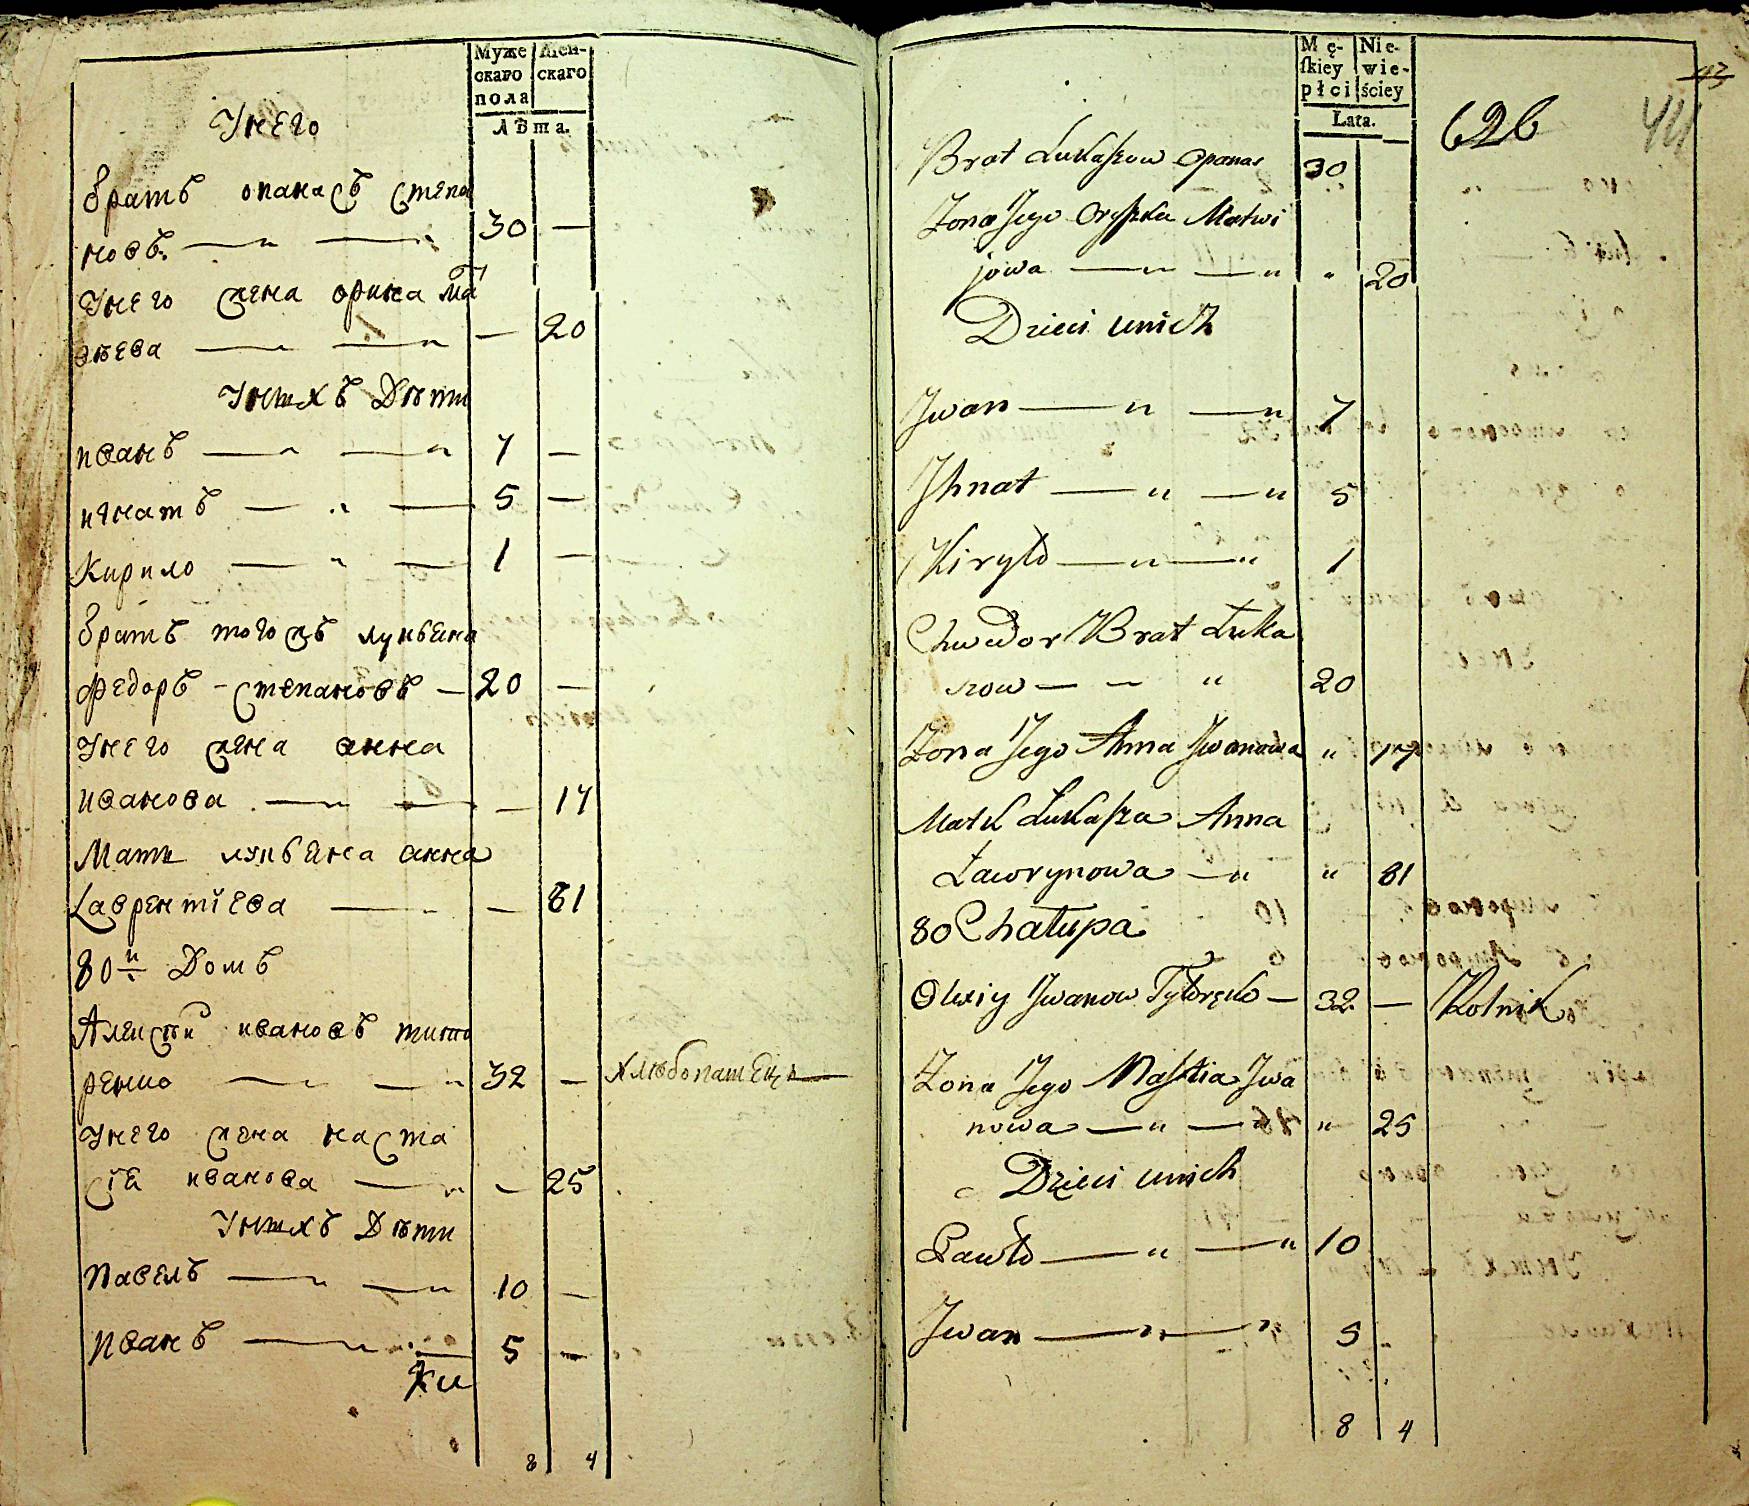 Муже
скаго
пола
Жен-
скаго
Лѣта.
Унего
братъ опанасъ степа
новъ. 30 —
Унего жена орина ма
ѳѣева — 20
Унихъ Дѣти
иванъ 7 —
игнатъ 5 —
Кирило 1 —
братъ тогожъ лукьяна
Федоръ - степановъ — 20 —
Унего жена анна
иванова — 17
Мати лукьяна анна
Лаврентіева — 81
80й Домъ
Алексѣй ивановъ тито
ренко 32 — Хлѣбопашецъ
Унего жена наста
сія иванова — 25
Унихъ Дѣти
Павелъ 10 —
Иванъ 5 —
8 4
Mę-
ſkiey
płci
Nie-
wie-
ściey
Lata.
43
626 44
Brat Łukaszow Opanas 30
Zona Jego Oryszka Matwi
jowa — " — " " 20
Dzieci unich
Jwan — " — " 7
Jhnat — " — " 5
Kiryło — " — " 1
Chwedor Brat Łuka
szow — — " 20
Zona Jego Anna Jwanowa " 17
Matk Łukasza Anna
Ławrynowa — " " 81
80 Chałupa
Olexiy Jwanow Tytoręko — 32 — Rolnik
Zona Jego Nastia Jwa
nowa — " — " " 25
Dzieci unich
Pawło — " — " 10
Jwan — " — " 5
8 4